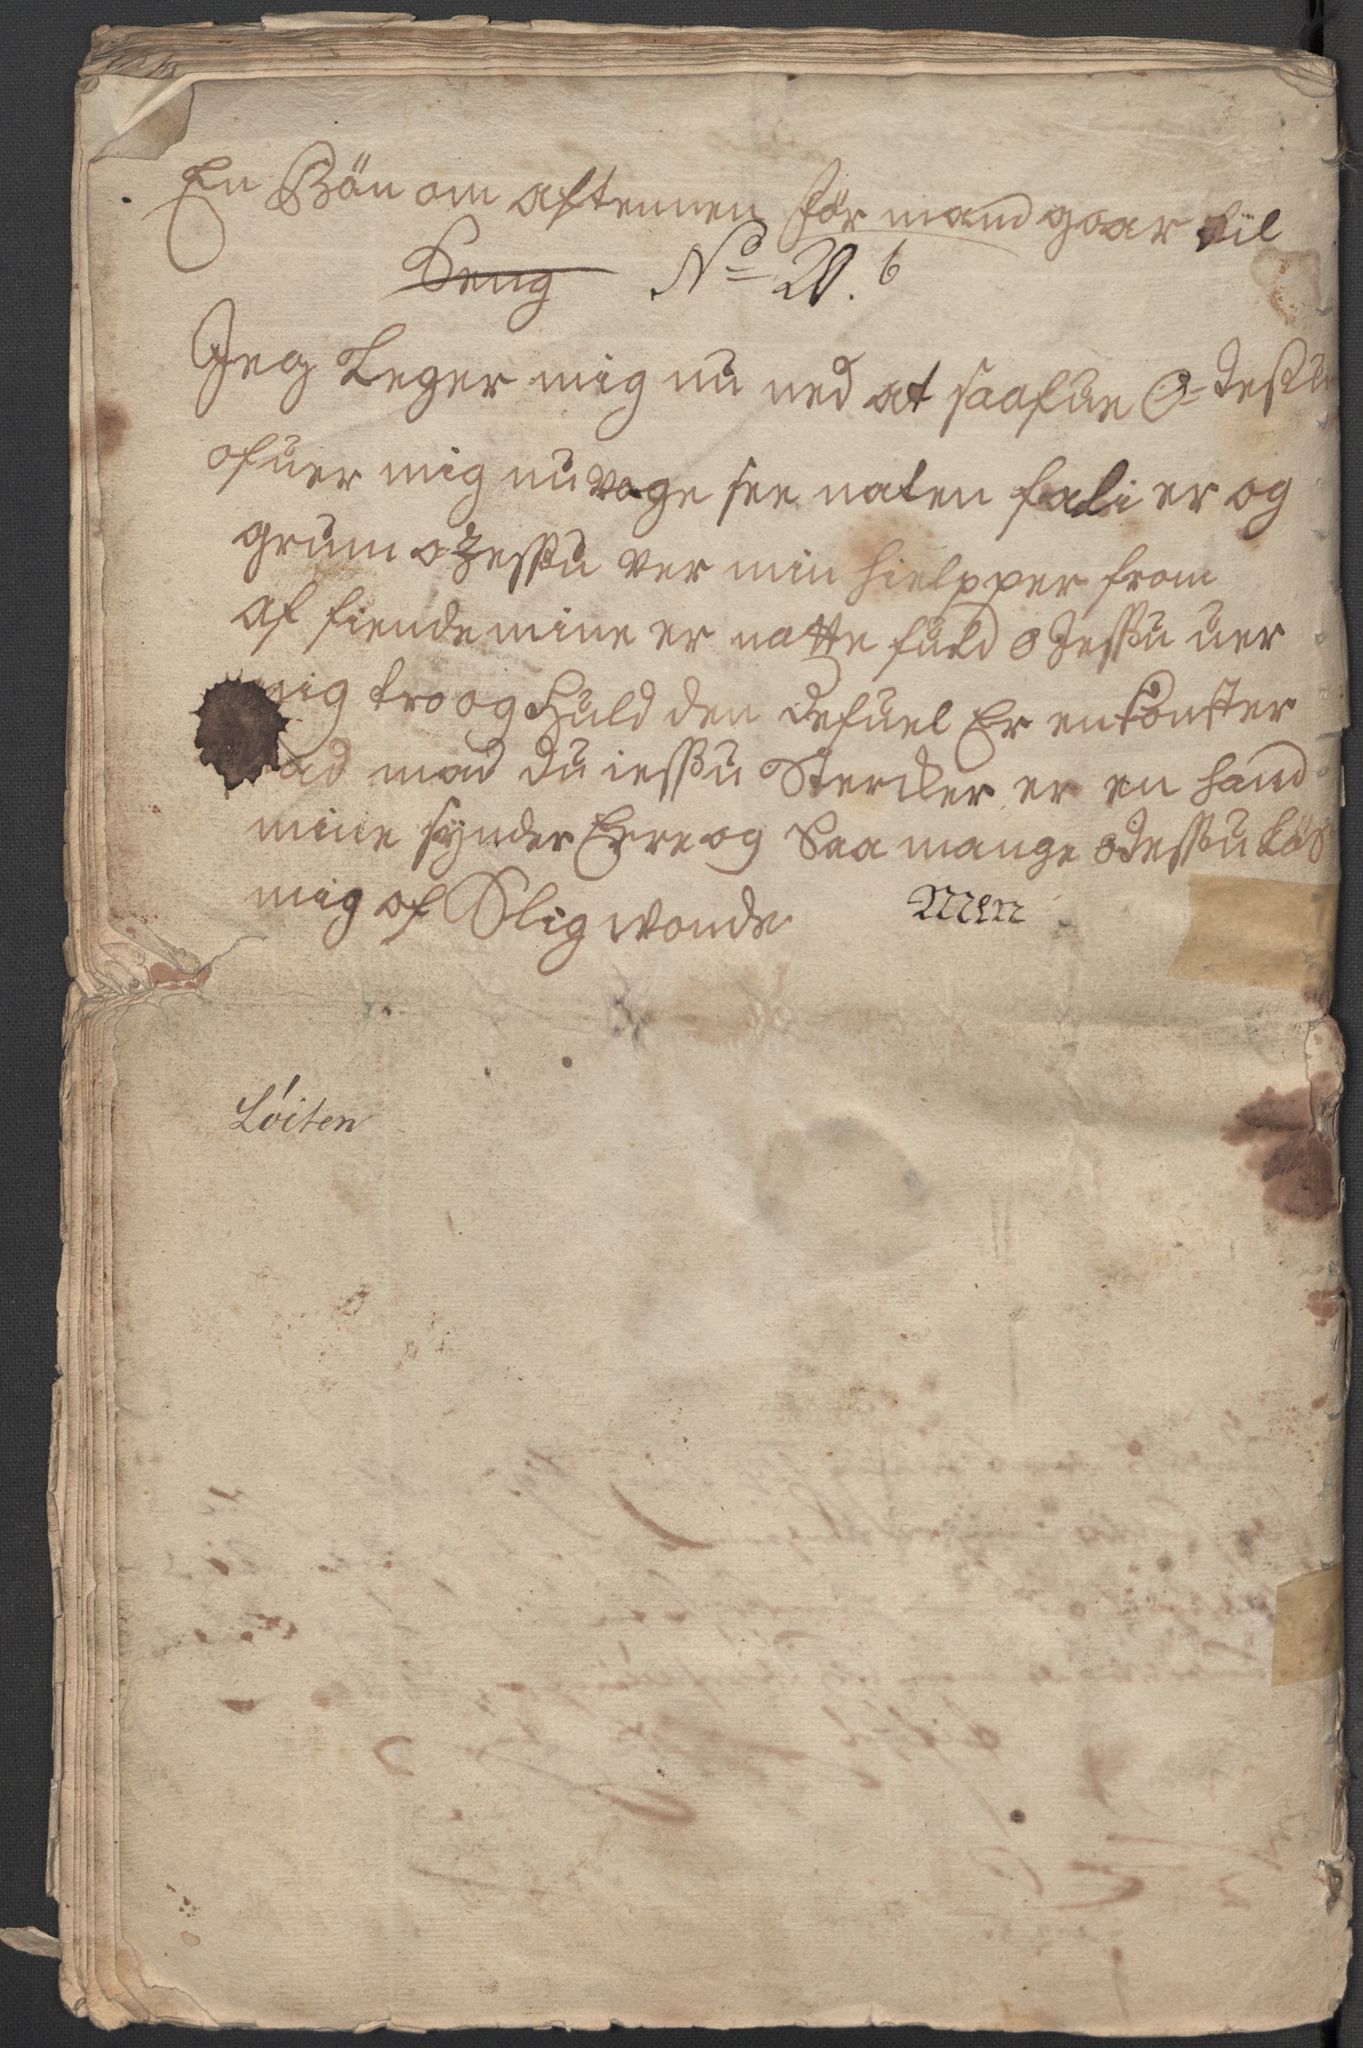 En Bön om aftennen før mand gaar til
Seng No 20. b
Jeg Leger mig nu ned at saafue O Jessu
ofuer mig nu vage see naten fali er og
grum o Jessu ver min hielpper from
af fiende mine er natte fuld o Jessu uer
mig tro og Huld den defuel Er en konster
mad du iessu Stercker er en hand
mine synder Erre og Saa mange o Jessu Løs
mig af Slig wonde Men
Löiten